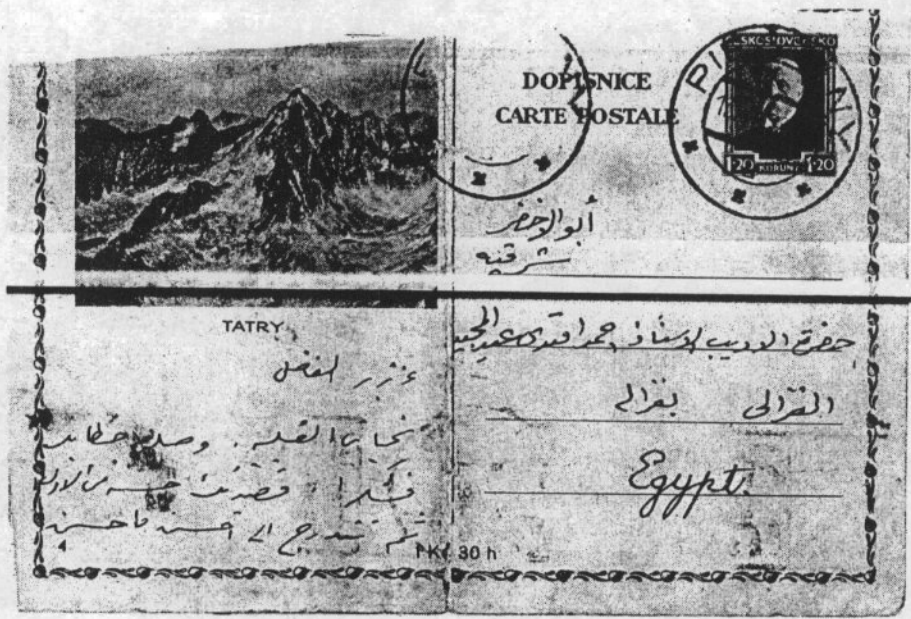 DOPISNICE
CARTE POSTALE
ČESKOSLOVENSKO
1·20 KORUNY 1·20
أبو الأخضر
شرقية
TATRY
حضرة الأديب الأستاذ محمد افندى عبد المجيد
الغزالى بغزالة
Egypt.
عزيزى المفضل
تحيات القلب. وصلنى خطابك
فشكرا.
ثم تتدرج الى أحسن فأحسن
1 Kč 30 h